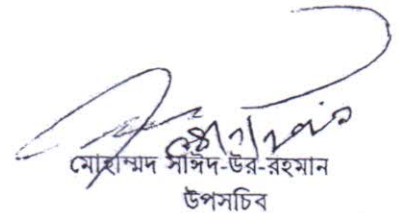 মোহাম্মদ সাঈদ-উর-রহমান
উপসচিব